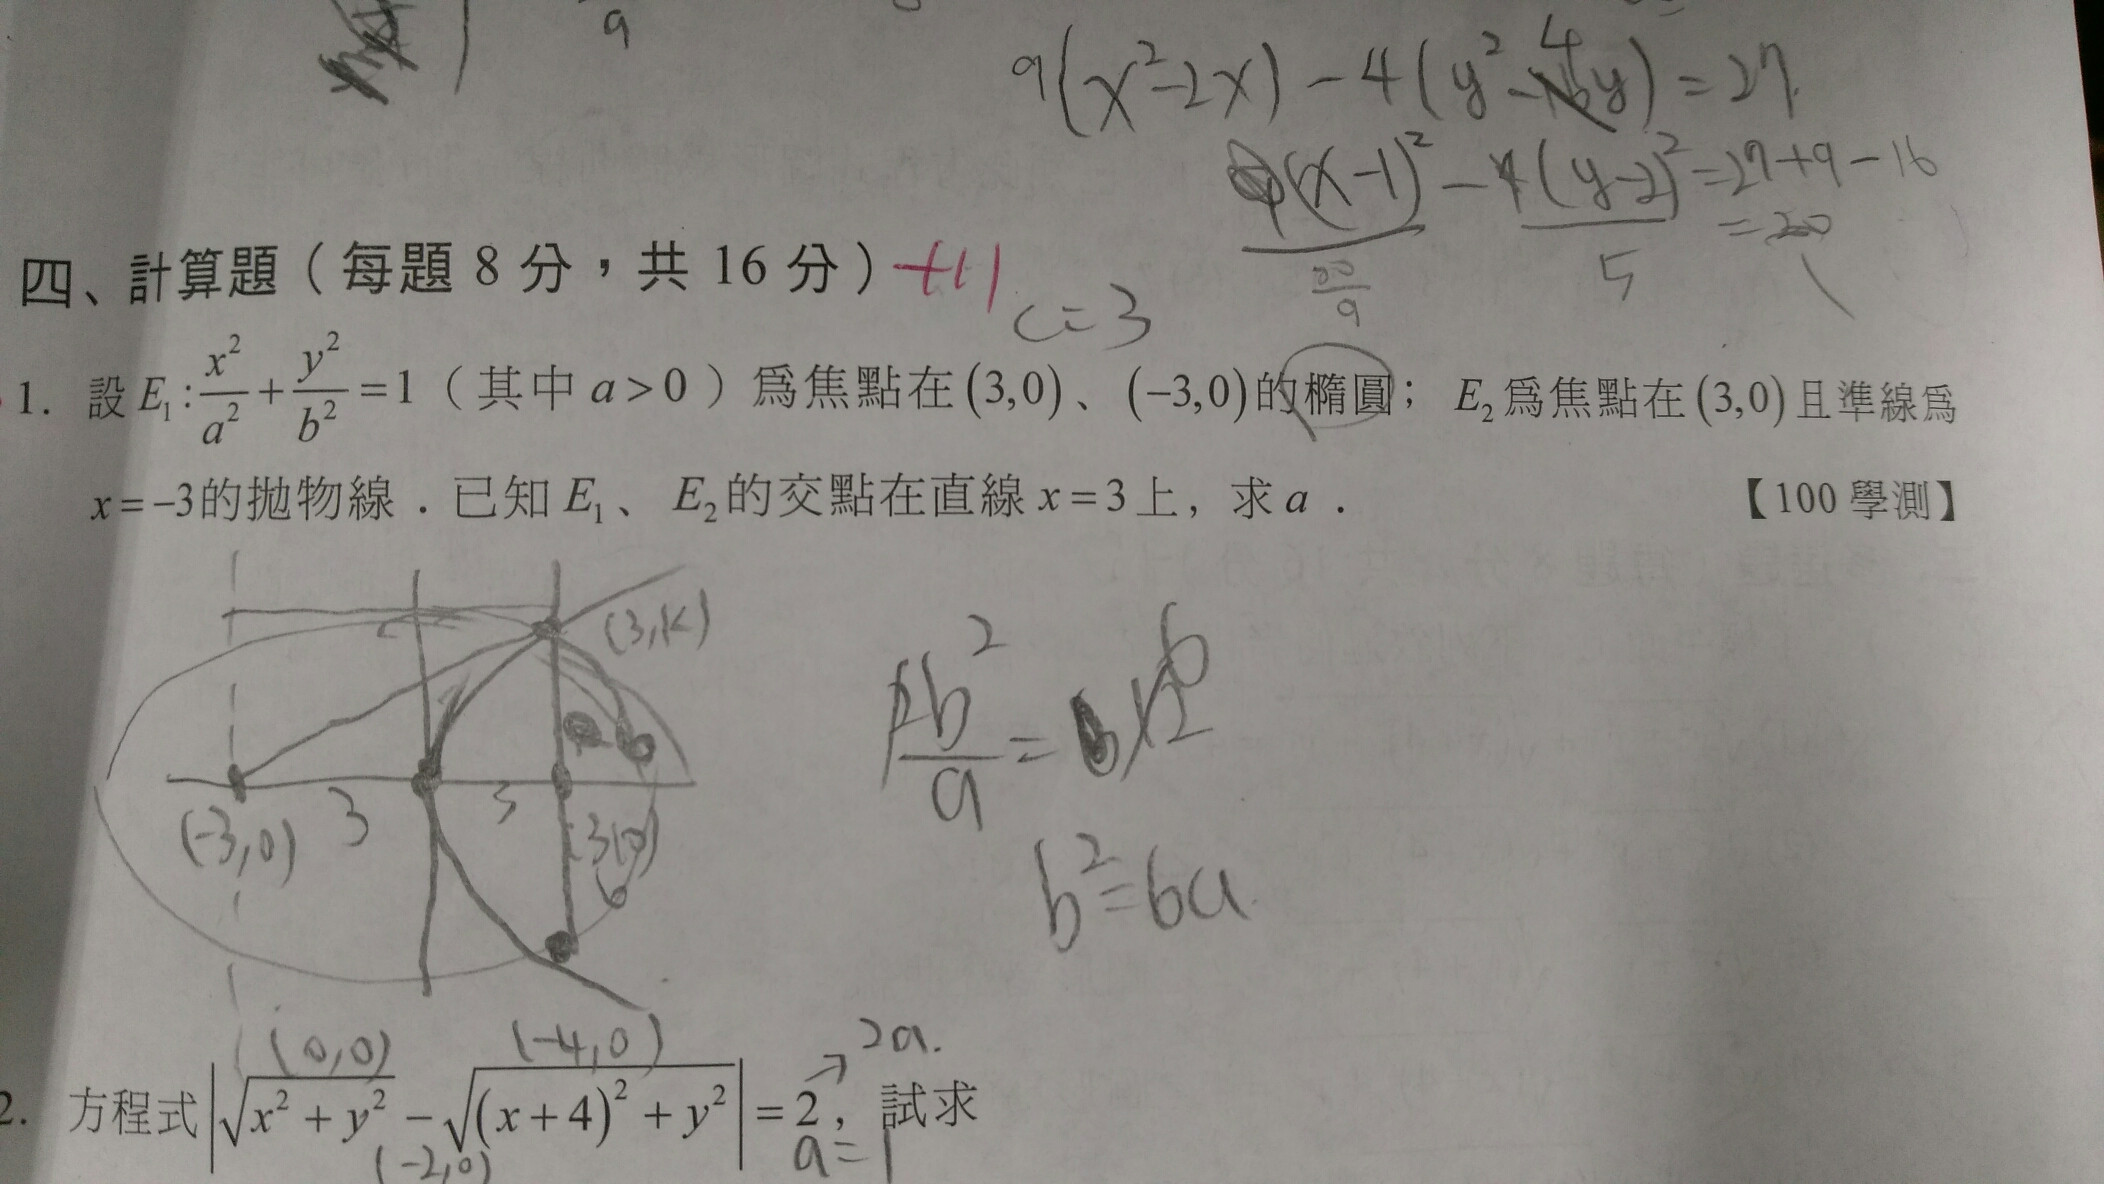 9
9(x²-2x)-4(y²-4y)=27
(x-1)² - (y-2)² =27+9-16
=20
20/9 5 1
四、計算題（每題 8 分，共 16 分）+11
c=3
1. 設 E₁: x²/a² + y²/b² =1（其中 a>0）為焦點在(3,0)、(-3,0)的橢圓； E₂為焦點在(3,0)且準線為
x=-3的拋物線．已知 E₁、E₂的交點在直線 x=3上，求 a ．【100 學測】
(3,k)
2b²/a = 12 6
(-3,0) 3 3 (3,0)
6
b²=6a
(0,0) (-4,0) 2a.
2. 方程式 |√(x²+y²) - √((x+4)²+y²)| = 2，試求
(-2,0) a=1